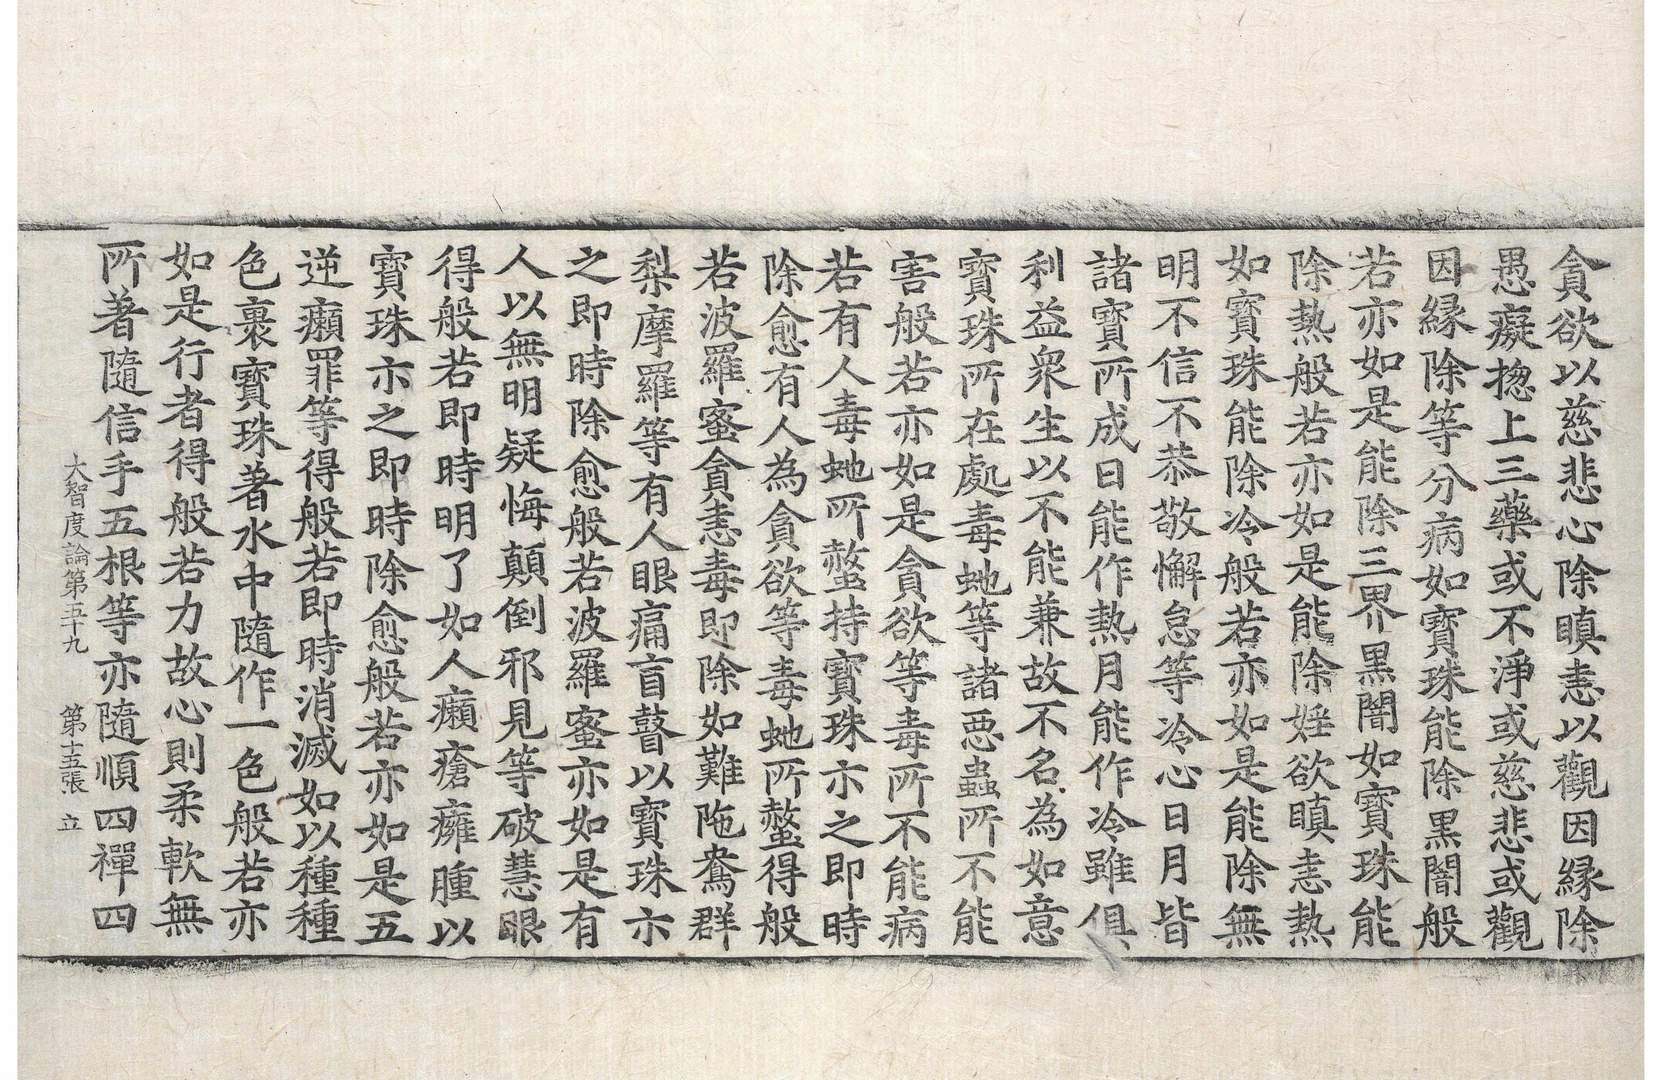 貪欲以慈悲心除瞋恚以觀因緣除
愚癡揔上三藥或不淨或慈悲或觀
因緣除等分病如寶珠能除黑闇般
若亦如是能除三界黑闇如寶珠能
除熱般若亦如是能除婬欲瞋恚熱
如寶珠能除冷般若亦如是能除無
明不信不恭敬懈怠等冷心日月皆
諸寶所成日能作熱月能作冷雖俱
利益衆生以不能兼故不名為如意
寶珠所在處毒虵等諸惡蟲所不能
害般若亦如是貪欲等毒所不能病
若有人毒虵所螫持寶珠示之即時
除愈有人為貪欲等毒虵所螫得般
若波羅蜜貪恚毒即除如難陁鴦群
梨摩羅等有人眼痛盲瞽以寶珠示
之即時除愈般若波羅蜜亦如是有
人以無明疑悔顛倒邪見等破慧眼
得般若即時明了如人癩瘡癰腫以
寶珠示之即時除愈般若亦如是五
逆癩罪等得般若即時消滅如以種種
色裹寶珠著水中隨作一色般若亦
如是行者得般若力故心則柔軟無
所著隨信手五根等亦隨順四禪四
大智度論第五十九　第十五張　立